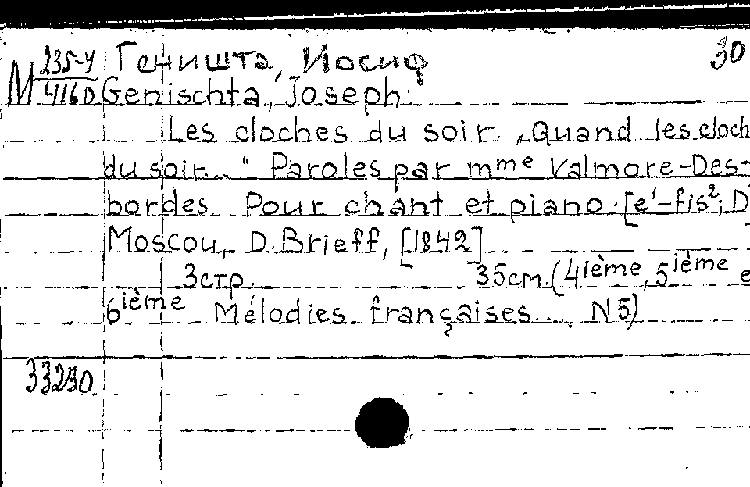 Геништа, Иосиф 30
М 235-4/416D Genischta, Joseph.
Les cloches du soir. „Quand les cloch
du soir..." Paroles par mme Valmore-Des-
bordes. Pour chant et piano. [e¹-fis²; D
Moscou, D. Brieff, [1842]
3 стр. 35 см. (4ième, 5ième e
6ième Mélodies françaises... N 5)
33230